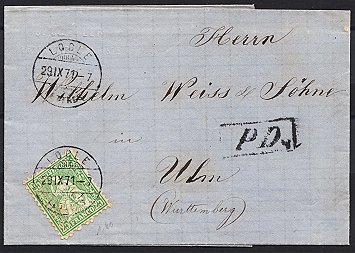 Herrn
LOCLE
29 IX 71 - 7
Wilhelm Weiss & Söhne
in
P.D.
LOCLE
29 IX 71 -
Ulm
(Württemberg)